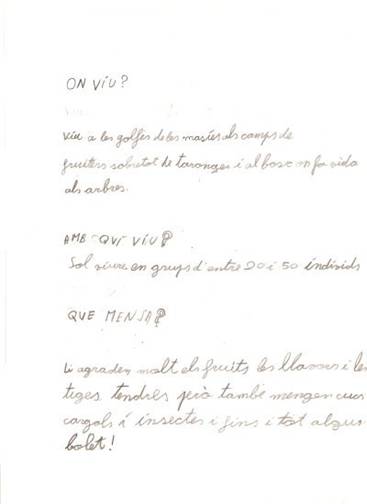 ON VIU?
viu a les golfes de les masies als camps de
fruiters sobretot de taronges i al bosc on fa vida
als arbres.
AMB QUI VIU?
Sol viure en grups d'entre 20 i 50 individs
QUE MENSA?
Li agraden molt els fruits les llavors i les
tiges tendres però també mengen cucs
cargols i insectes i fins i tot algun
bolet!